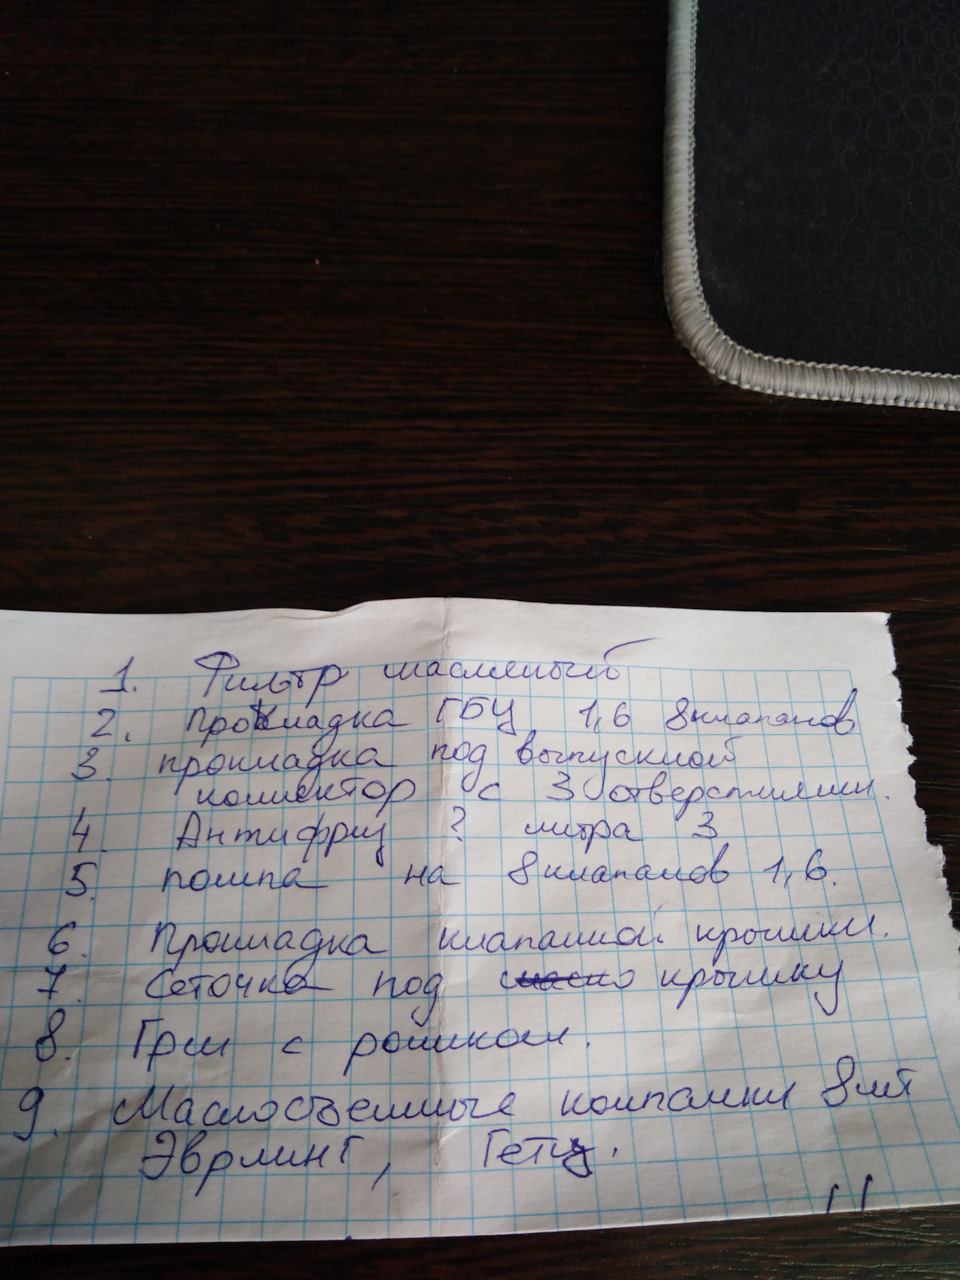 1. Фильтр масляный
2. Прокладка ГБЦ 1,6 8клапанов
3. прокладка под выпускной
коллектор с 3 отверстиями.
4. Антифриз ? литра 3
5. помпа на 8клапанов 1,6.
6. Прокладка клапаной крышки.
7. Сеточка под крышку
8. Грм с роликом.
9. Маслосъемные колпачки 8шт
Эврлинг, Гетц.